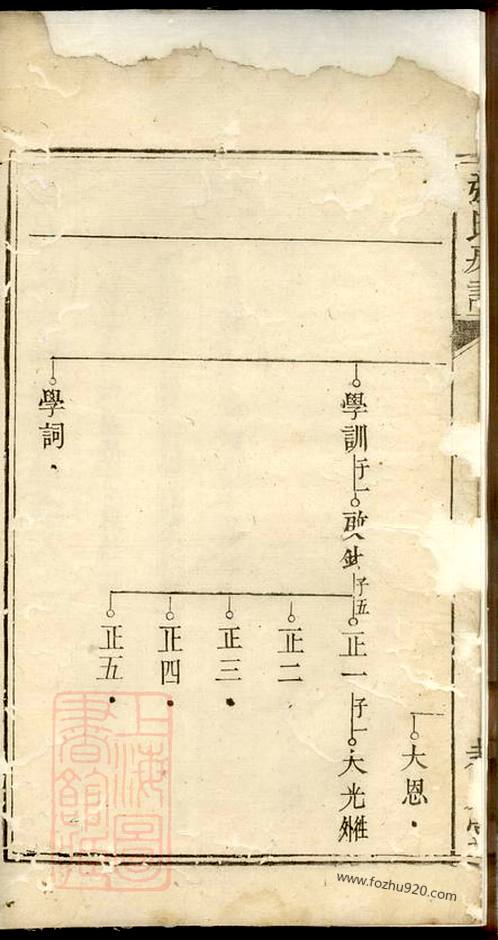 大恩
學訓
子一
子五
正一
子一
大光
往外
正二
正三
正四
正五
學詞
上海圖書館藏
www.fozhu920.com